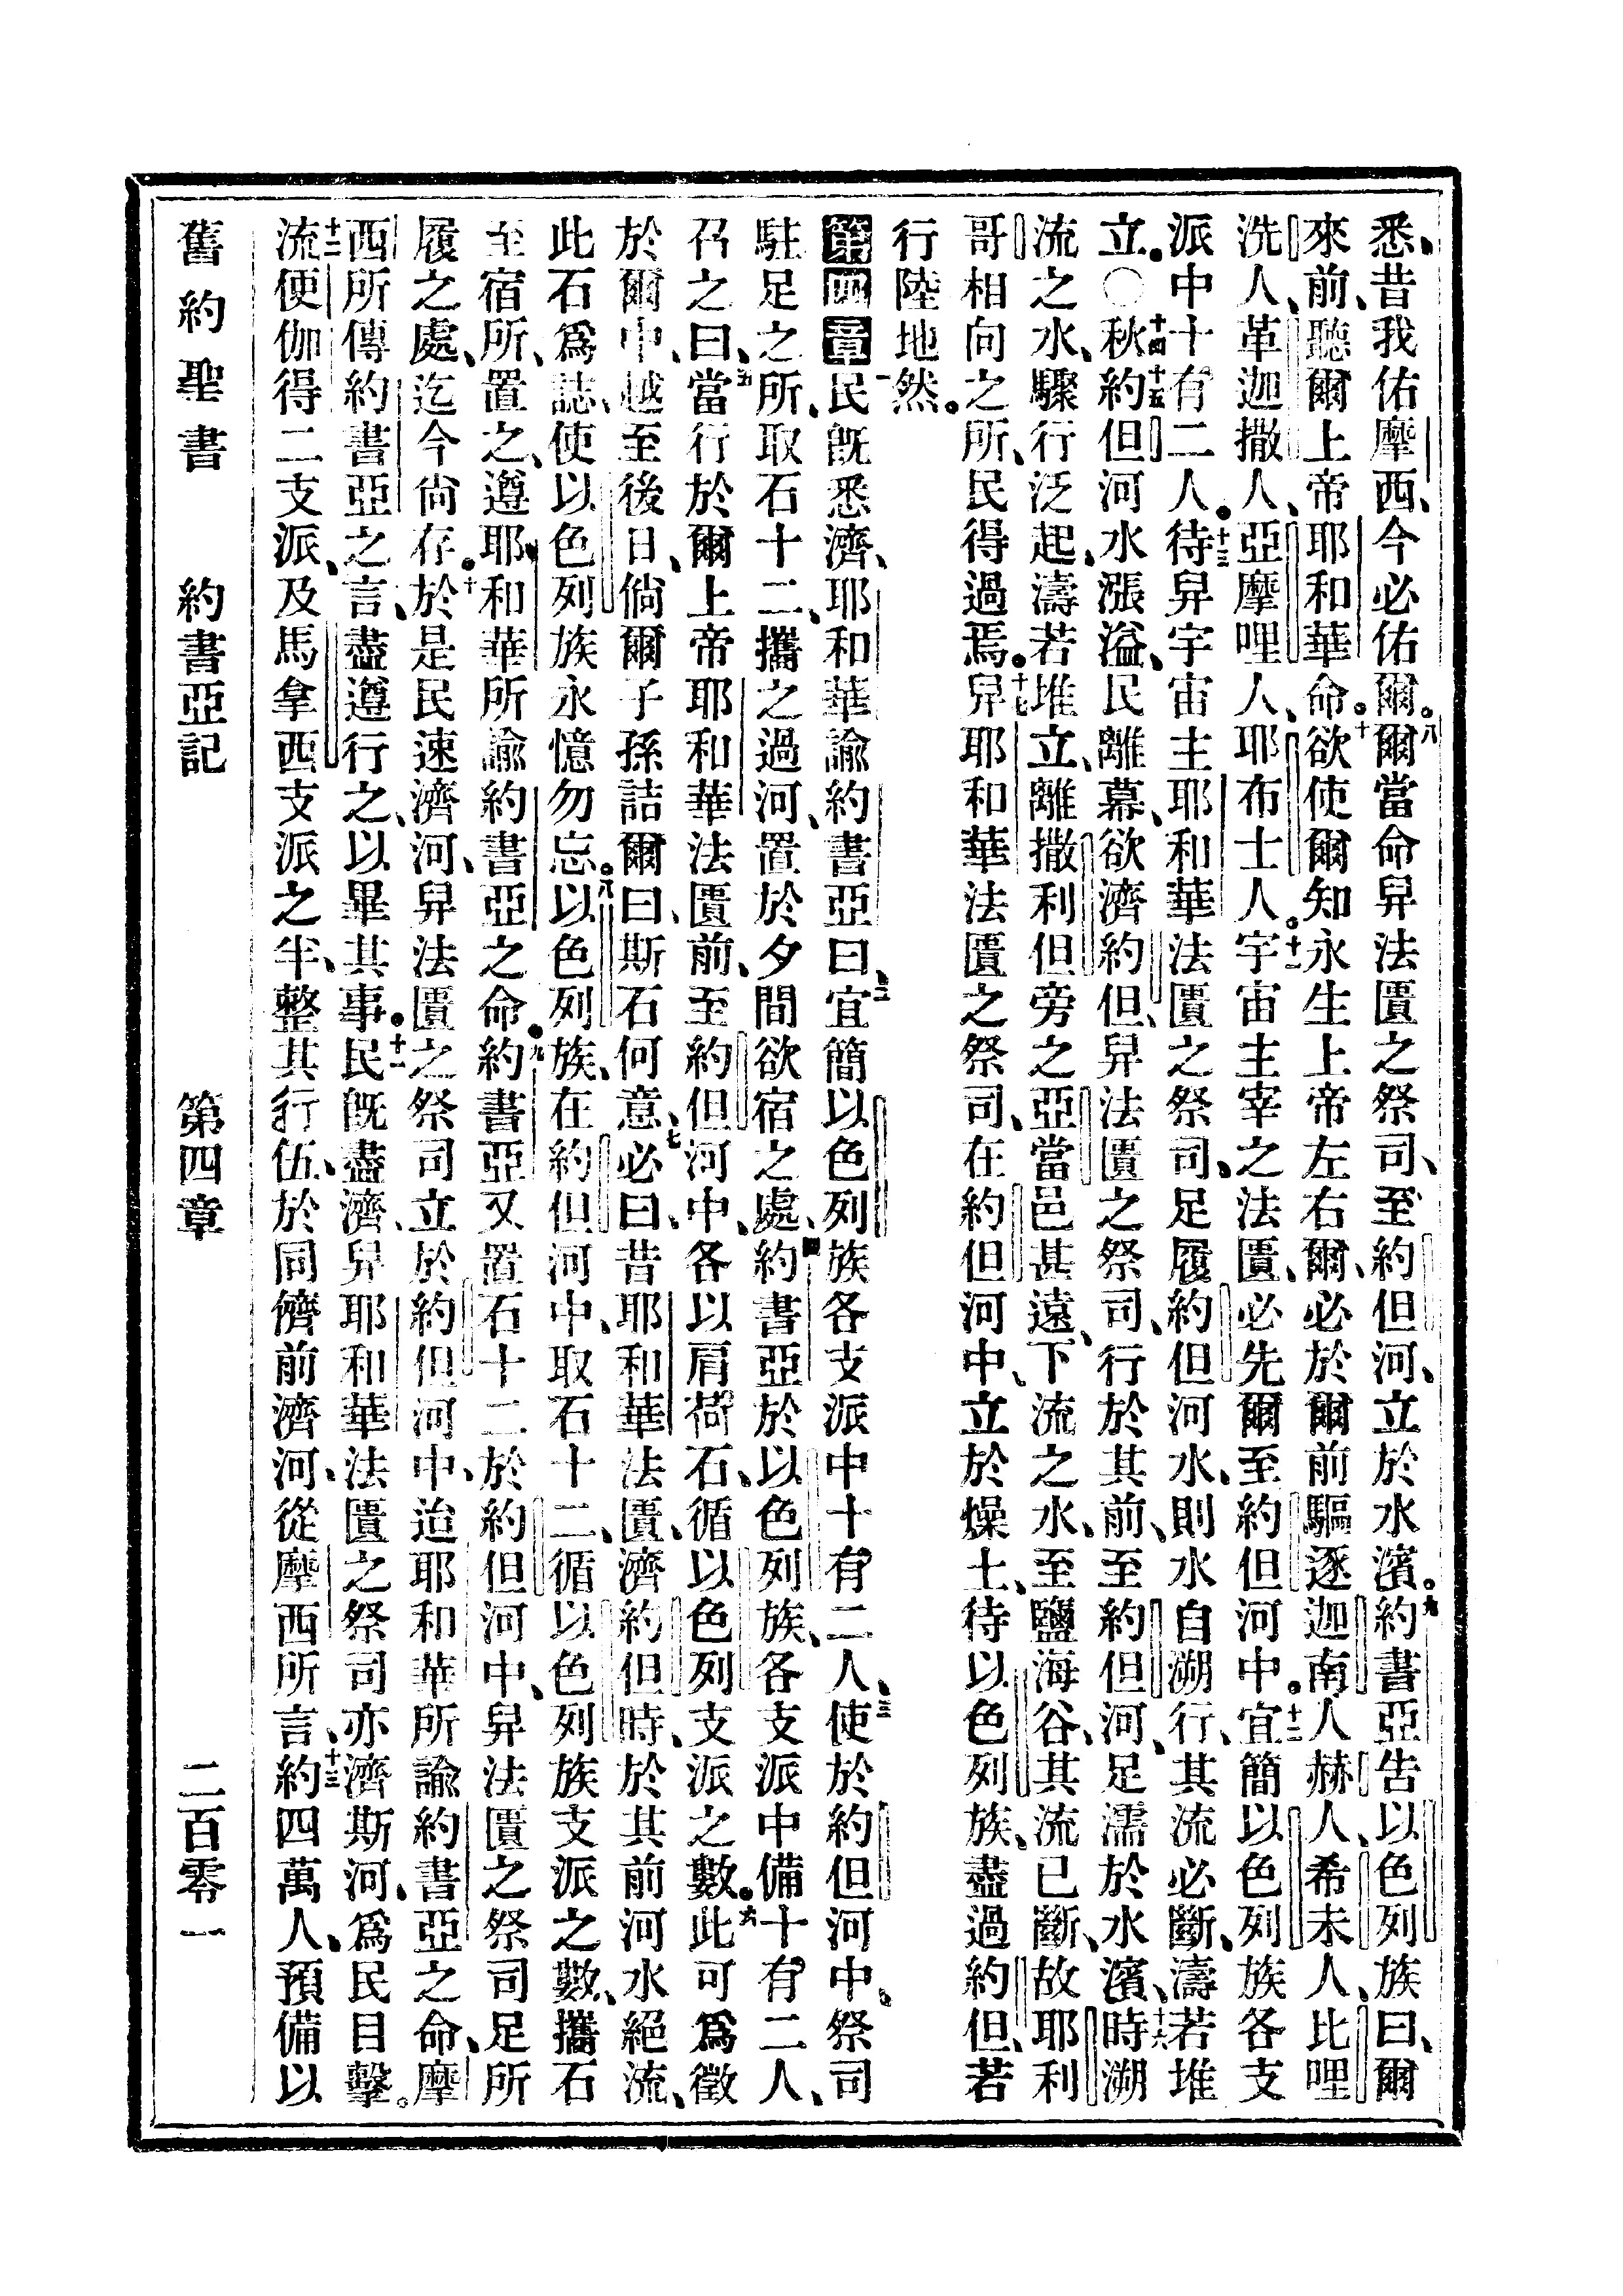 悉、昔我佑摩西、今必佑爾。八爾當命舁法匱之祭司、至約但河、立於水濱。九約書亞告以色列族曰、爾
來前、聽爾上帝耶和華命。十欲使爾知永生上帝左右爾、必於爾前驅逐迦南人赫人、希未人、比哩
洗人、革迦撒人、亞摩哩人、耶布士人。十一宇宙主宰之法匱、必先爾至約但河中。十二宜簡以色列族各支
派中十有二人。十三待舁宇宙主耶和華法匱之祭司、足履約但河水、則水自溯行、其流必斷、濤若堆
立。〇十四秋十五約但河水漲溢、民離幕、欲濟約但、舁法匱之祭司、行於其前、至約但河、足濡於水濱、十六時溯
流之水、驟行泛起、濤若堆立、離撒利但旁之亞當邑甚遠、下流之水、至鹽海谷、其流已斷、故耶利
哥相向之所、民得過焉。十七舁耶和華法匱之祭司、在約但河中、立於燥土、待以色列族、盡過約但、若
行陸地然。
第四章一民既悉濟、耶和華諭約書亞曰、二宜簡以色列族各支派中十有二人、三使於約但河中、祭司
駐足之所、取石十二、攜之過河、置於夕間欲宿之處、四約書亞於以色列族、各支派中備十有二人、
召之曰、五當行於爾上帝耶和華法匱前、至約但河中、各以肩荷石、循以色列支派之數。六此可爲徵
於爾中、越至後日、倘爾子孫詰爾曰、斯石何意、七必曰、昔耶和華法匱、濟約但時、於其前河水絕流、
此石爲誌、使以色列族永憶勿忘。八以色列族、在約但河中、取石十二、循以色列族支派之數、攜石
至宿所、置之、遵耶和華所諭約書亞之命。九約書亞又置石十二於約但河中、舁法匱之祭司足所
履之處、迄今尚存。十於是民速濟河、舁法匱之祭司立於約但河中、迨耶和華所諭約書亞之命、摩
西所傳約書亞之言、盡遵行之、以畢其事。十一民既盡濟、舁耶和華法匱之祭司亦濟斯河、爲民目擊。
十二流便伽得二支派、及馬拿西支派之半、整其行伍、於同儕前濟河、從摩西所言、十三約四萬人、預備以
舊約聖書　約書亞記　第四章　二百零一